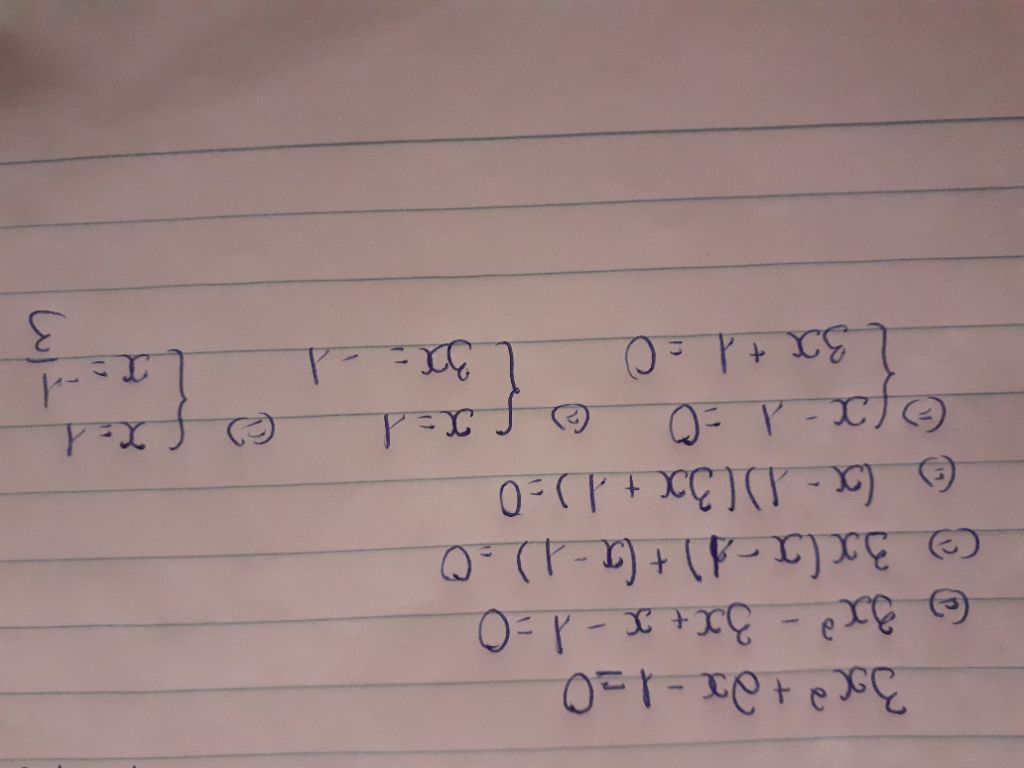 3x² + 2x - 1 = 0
(=) 3x² - 3x + x - 1 = 0
(=) 3x(x - 1) + (x - 1) = 0
(=) (x - 1)(3x + 1) = 0
(=) { x - 1 = 0 (=) { x = 1 (=) { x = 1
{ 3x + 1 = 0 { 3x = -1 { x = -1/3